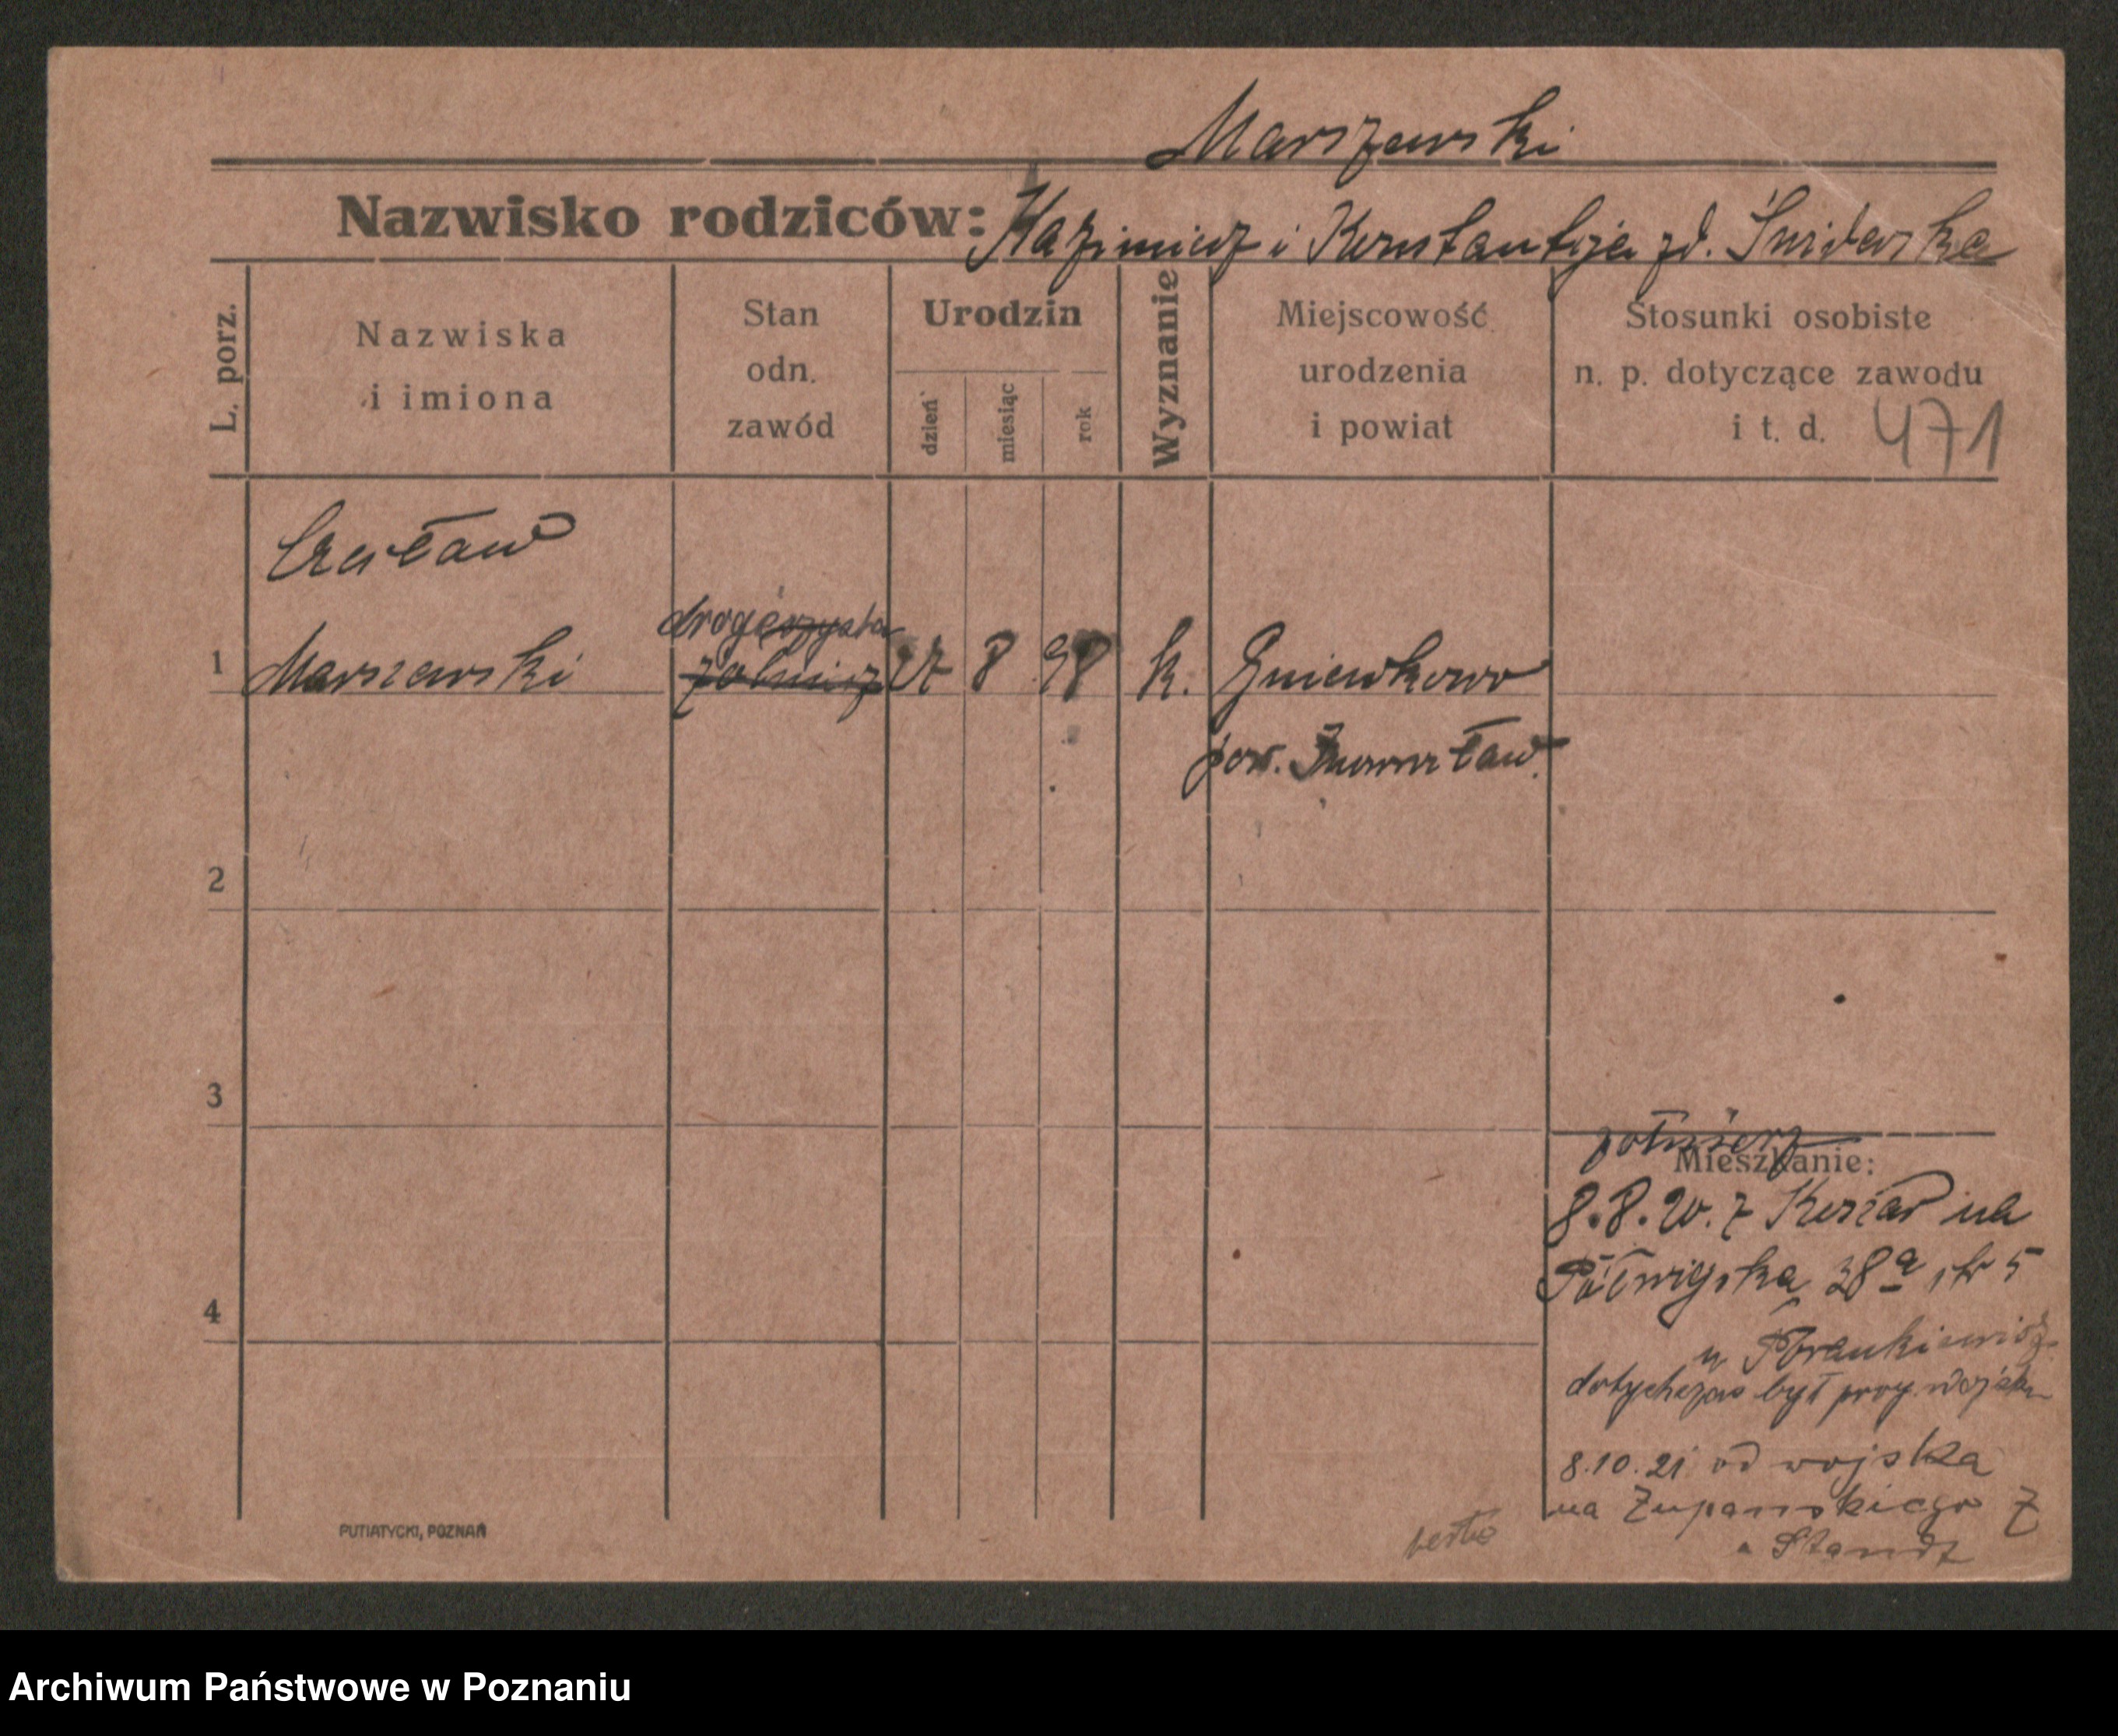 Marszewski
Nazwisko rodziców: Kazimierz i Konstantyja zd. Świderska
L. porz.
Nazwiska
i imiona
Stan
odn.
zawód
Urodzin
dzień
miesiąc
rok
Wyznanie
Miejscowość
urodzenia
i powiat
Stosunki osobiste
n. p. dotyczące zawodu
i t. d. 471
Czesław
drogerzysta
1 Marszewski żołnierz 8 98 k. Gniewkowo
pow. Inowrocław.
2
3
żołnierz
Mieszkanie:
8.8.20. z Koszar na
Półwiejska 38a 5
4
u
dotychczas był przy wojsku
8.10.21 od wojska
na Żupańskiego 7
PUTIATYCKI, POZNAŃ
Archiwum Państwowe w Poznaniu